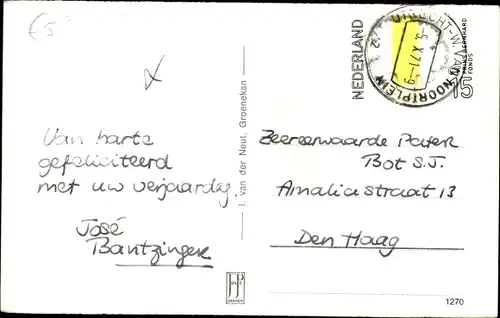 €5
Van harte
gefeliciteerd
met uw verjaardag.
José
Bantzinger
I. van der Neut, Groenekan
NEDERLAND
UTRECHT-W. VAN NOORTPLEIN
X.71
PRINS BERNHARD
FONDS
15
Zeereerwaarde Pater
Bot S.J.
Amaliastraat 13
Den Haag
1270